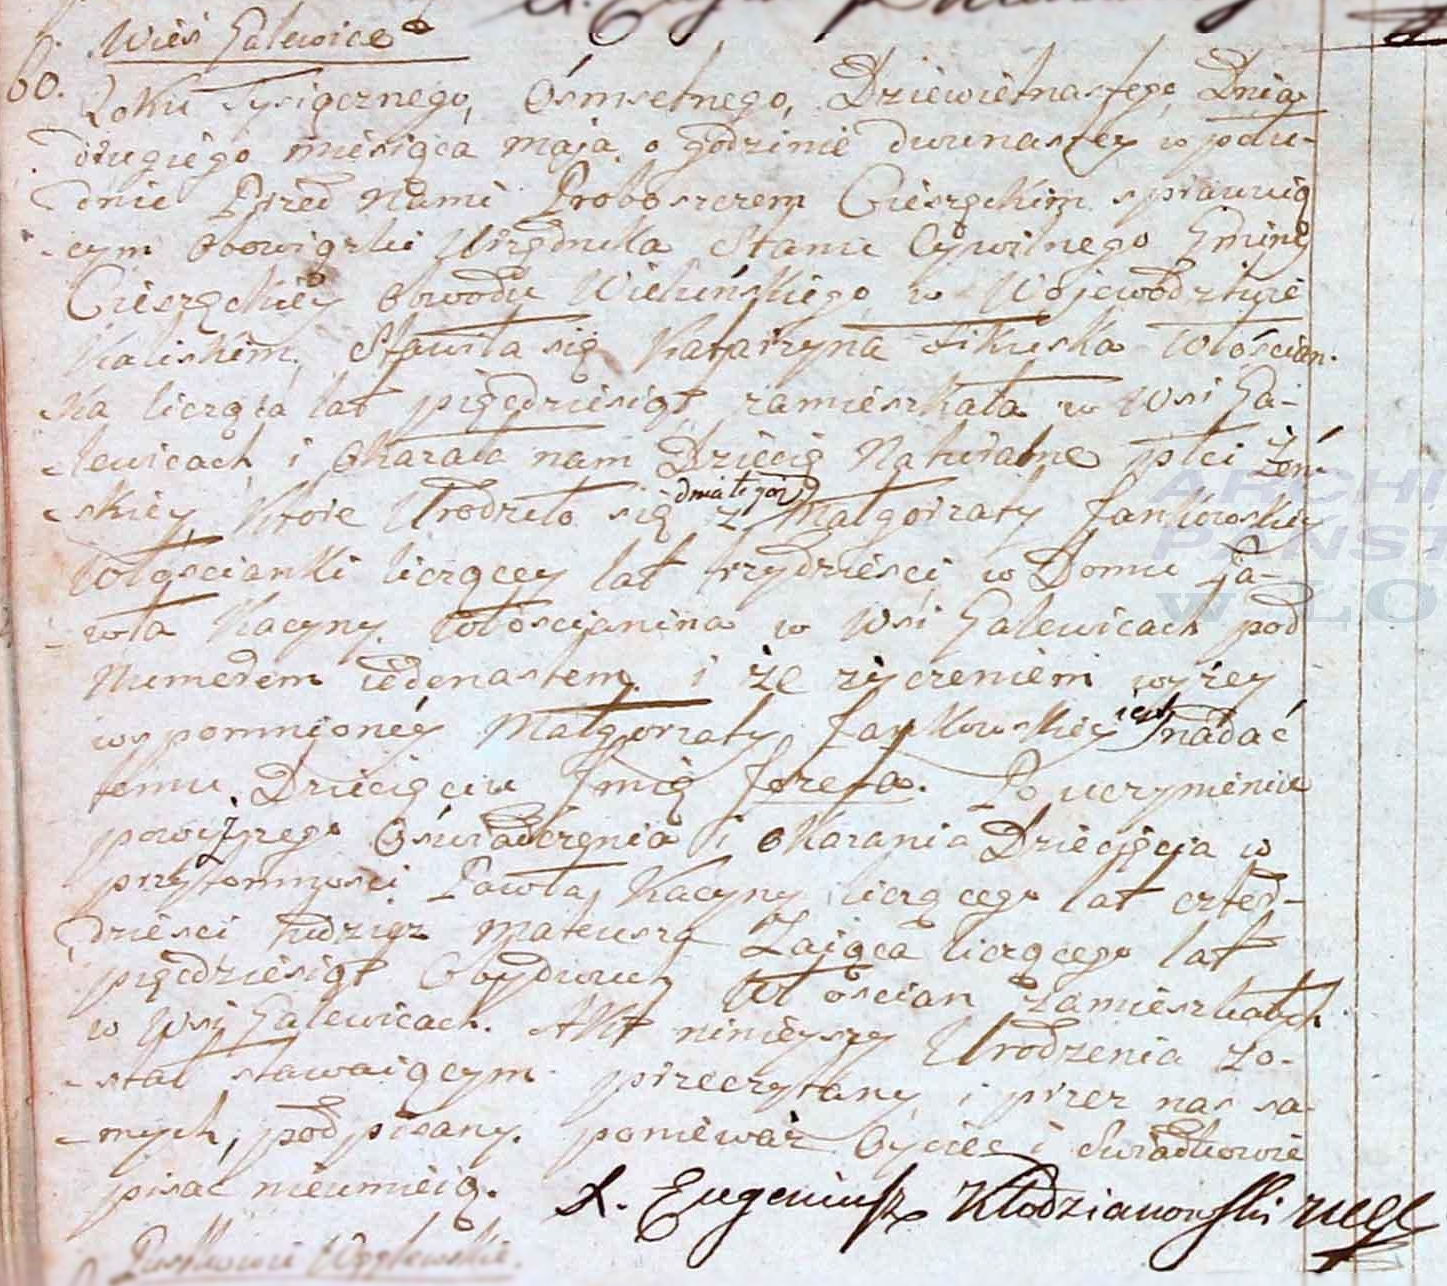 Wieś Galewice
60. Roku Tysiącznego, Osmsetnego, Dziewiętnastego Dnia
drugiego miesiąca maja o godzinie dwunastey w połu-
dnie Przed Nami Proboszczem Cieszęckim sprawuią
-cym obowiązki Urzędnika Stanu Cywilnego Gminy
Cieszęckiey obwodu Wieluńskiego w Wojewodztwie
Kaliskim, Stawiła się Katarzyna Likuska Włościan-
-ka licząca lat pięćdziesiąt zamieszkała w Wsi Ga-
-lewicach i okazała nam Dziecię Naturalne płci żeń
-skiey, ktore Urodziło się z Małgorzaty Jankowskiey
Włościanki liczącey lat trzydzieści w Domu Pa-
-wła Kacyny Włościanina w Wsi Galewicach pod
Numerem iedenastem i że życzeniem wyżey
wspomnioney Małgorzaty Jankowskiey iest nadać
temu Dziecięciu Imię Jozefa. Po uczynieniu
powyższego Oświadczenia i okazania Dziecięcia w
przytomności Pawła Kacyny liczącego lat czter-
dzieści tudzież Mateusza Zaiąca liczącego lat
pięćdziesiąt Obydwuch Włościan zamieszkałych
w Wsi Galewicach. Akt ninieyszy Urodzenia zo-
-stał stawaiącym przeczytany i przez nas sa-
-mych, podpisany. ponieważ Oyciec i Swiadkowie
pisać nieumieią. X. Eugeniusz Kłodzianowski
ARCHI
PAŃST
W ŁO